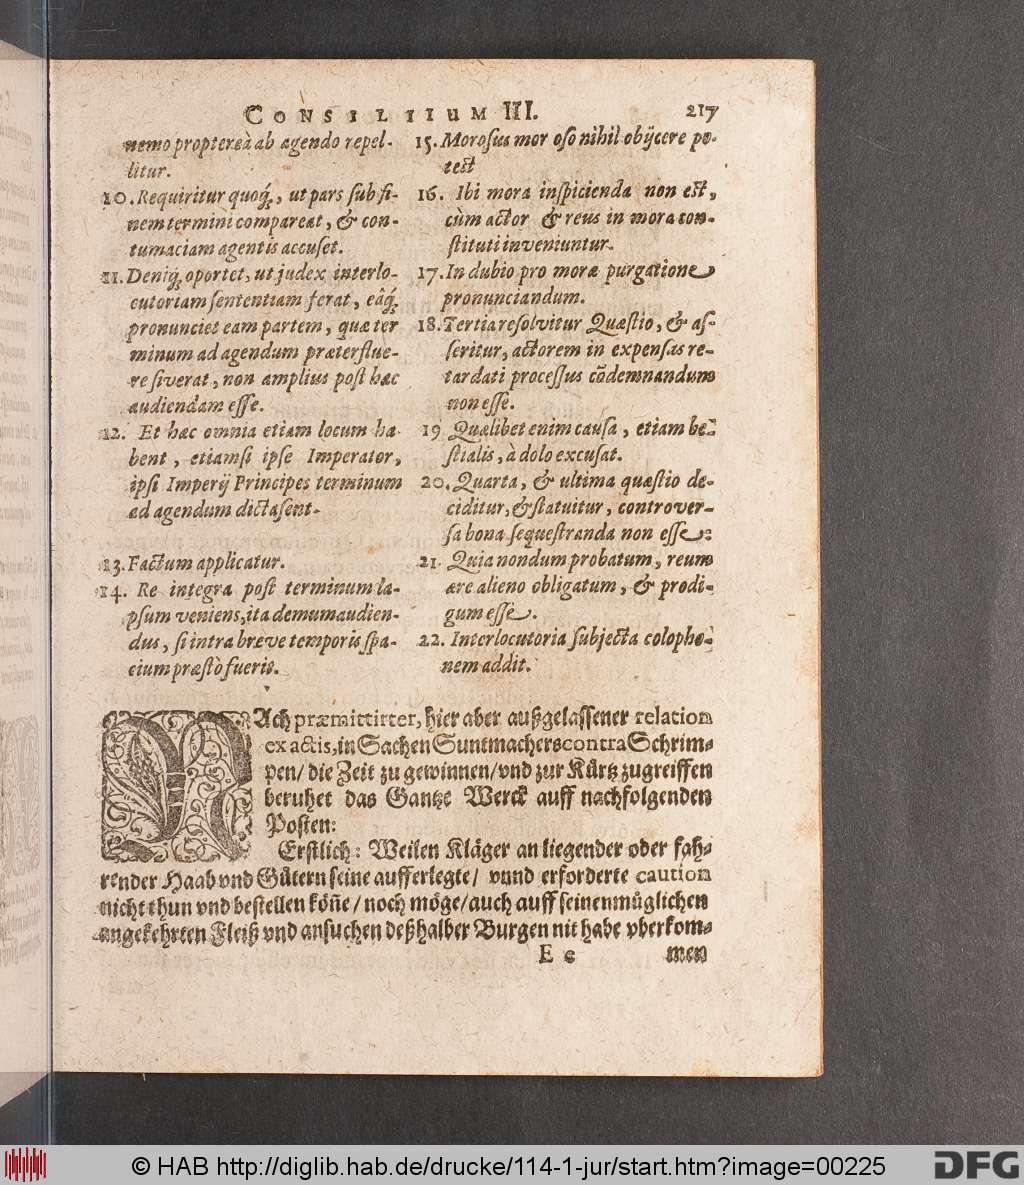 CONSILIIUM III. 217
nemo propterea ab agendo repel-
litur.
10. Requiritur quoq́;, ut pars sub fi-
nem termini compareat, & con-
tumaciam agentis accuset.
11. Deniq́; oportet, ut judex interlo-
cutoriam sententiam ferat, eâq́;
pronunciet eam partem, quæ ter
minum ad agendum præterflue-
re siverat, non amplius post hæc
audiendam esse.
12. Et hæc omnia etiam locum ha
bent, etiamsi ipse Imperator,
ipsi Imperij Principes terminum
ad agendum dictasent.
13. Factum applicatur.
14. Re integra post terminum la-
psum veniens, ita demum audien-
dus, si intra breve temporis spa-
cium præstò fueris.
15. Morosus mor oso nihil obijcere po-
test
16. Ibi mora inspicienda non est,
cùm actor & reus in mora con-
stituti inveniuntur.
17. In dubio pro moræ purgatione
pronunciandum.
18. Tertia resolvitur Quæstio, & as-
seritur, actorem in expensas re-
tardati processus cõdemnandum
non esse.
19 Quælibet enim causa, etiam be-
stialis, à dolo excusat.
20. Quarta, & ultima quæstio de-
ciditur, & statuitur, controver-
sa bona sequestranda non esse:
21. Quia nondum probatum, reum
ære alieno obligatum, & prodi-
gum esse.
22. Interlocutoria subjecta colopho-
nem addit.
NAch præmittirter, hier aber außgelassener relation
ex actis, in Sachen Suntmachers contra Schrim-
pen/ die Zeit zu gewinnen/ vnd zur Kürtz zugreiffen
beruhet das Gantze Werck auff nachfolgenden
Posten:
Erstlich: Weilen Kläger an liegender oder fah-
render Haab vnd Gütern seine aufferlegte/ vnnd erforderte caution
nicht thun vnd bestellen köñe/ noch möge/ auch auff seinen müglichen
angekehrten Fleiß vnd ansuchen deßhalber Burgen nit habe vberkom-
E e men
© HAB http://diglib.hab.de/drucke/114-1-jur/start.htm?image=00225
DFG